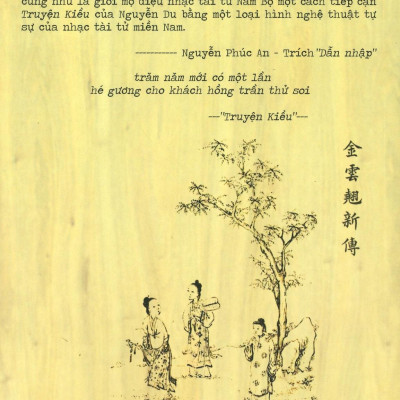 cũng như là giới mộ điệu nhạc tài tử Nam Bộ một cách tiếp cận
Truyện Kiều của Nguyễn Du bằng một loại hình nghệ thuật tự
sự của nhạc tài tử miền Nam.
----------- Nguyễn Phúc An - Trích "Dẫn nhập"
trăm năm mới có một lần
hé gương cho khách hồng trần thử soi
---"Truyện Kiều"---
金雲翹新傳